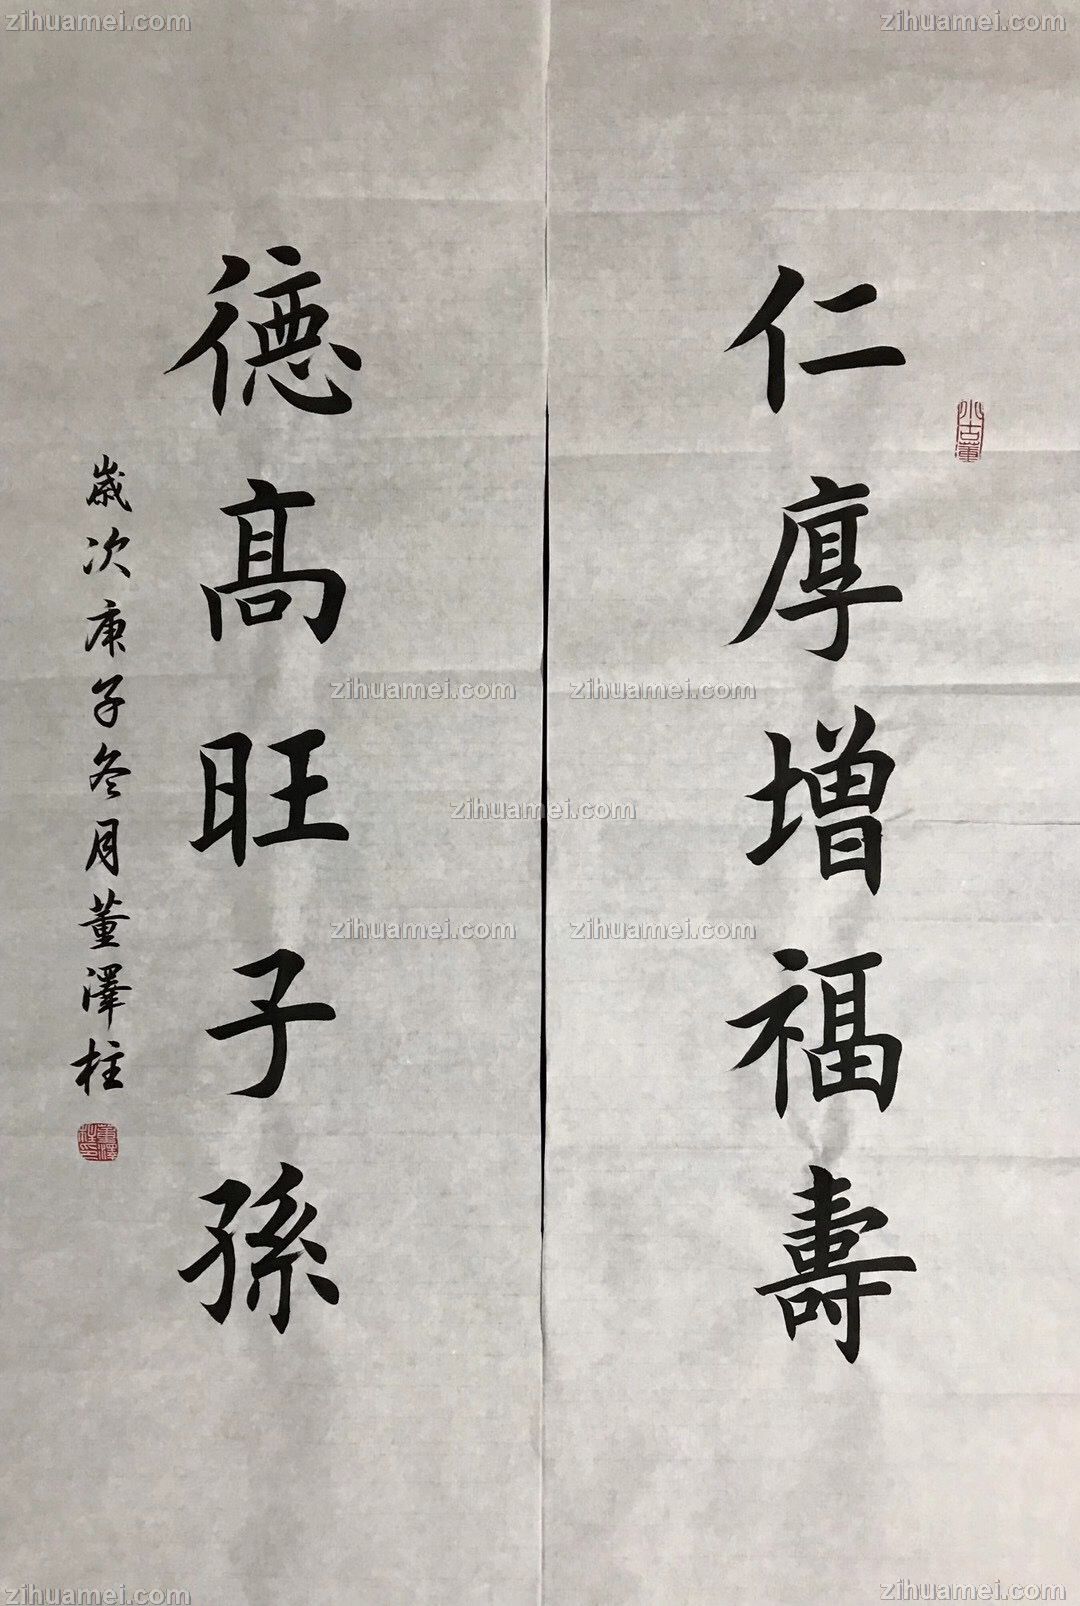 zihuamei.com
zihuamei.com
仁厚增福壽
德高旺子孫
歲次庚子冬月董澤柱
zihuamei.com
zihuamei.com
zihuamei.com
zihuamei.com
zihuamei.com
zihuamei.com
zihuamei.com